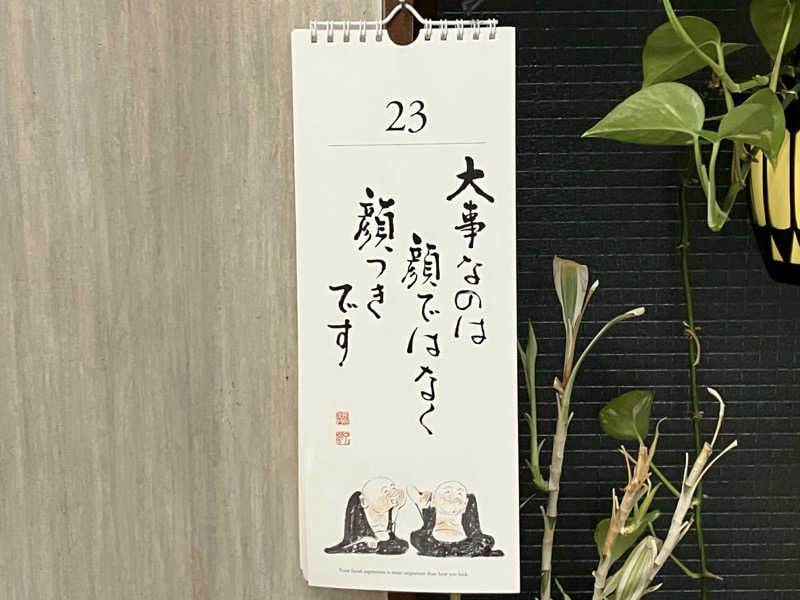 23
大事なのは
顔ではなく
顔つき
です.
Your facial expression is more important than how you look.